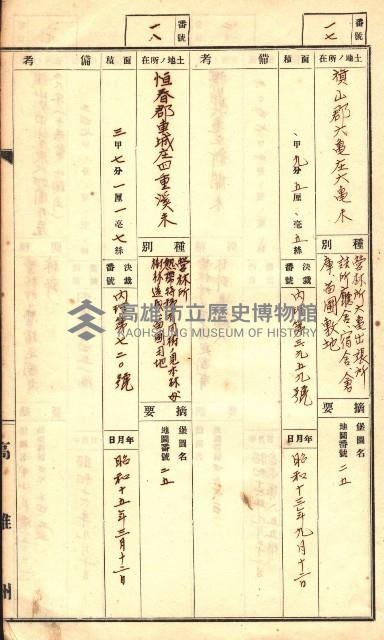 番號
一七
土地ノ所在
旗山郡六龜庄六龜
種別
營林所六龜出張所
詰所廳舍宿舍倉
庫苗圃敷地
摘要
堡圖名
地圖番號 二五
面積
甲九分五厘 毫五絲
決裁番號
內 第三九五九號
年月日
昭和十三年九月十二日
備考
番號
一八
土地ノ所在
恒春郡車城庄四重溪
種別
營林所
樹林造成苗圃用地
摘要
堡圖名
地圖番號 二五
面積
三甲七分一厘一毫七絲
決裁番號
內 第七二〇號
年月日
昭和十五年三月十二日
備考
高雄州
高雄市立歷史博物館
KAOHSIUNG MUSEUM OF HISTORY